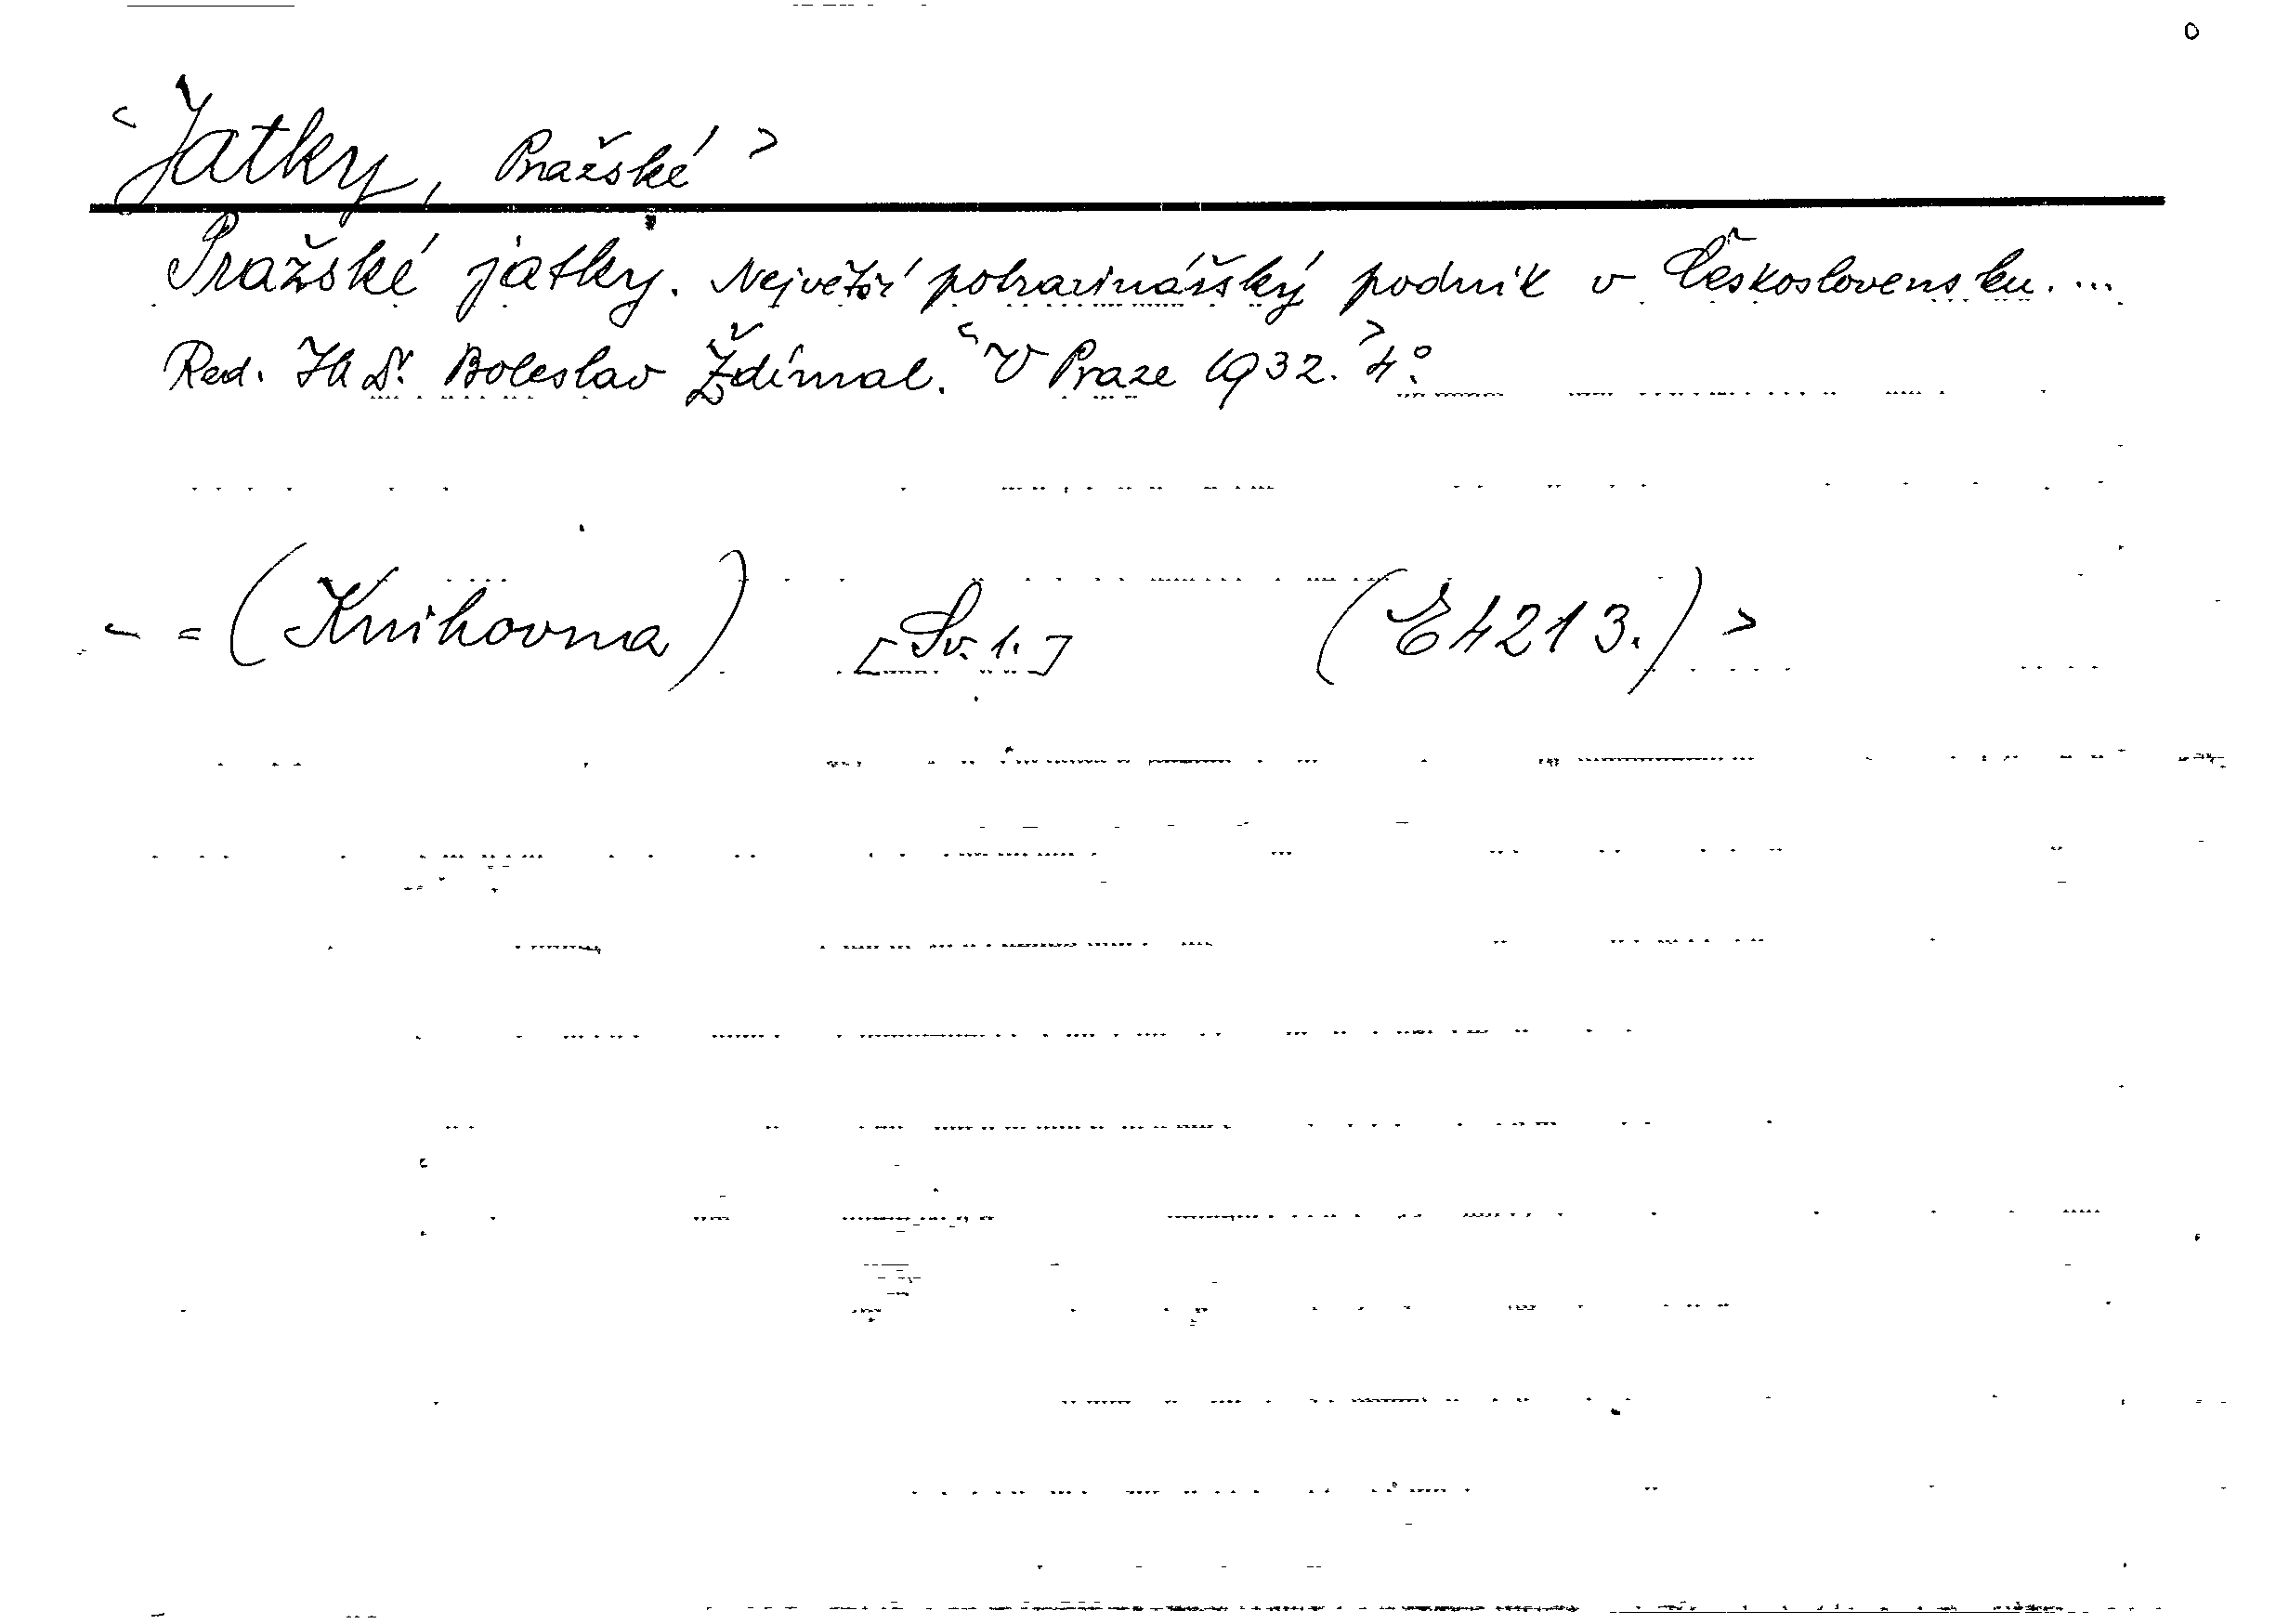 <Jatky, Pražské>
Pražské jatky. Největší potravinářský podnik v Československu. ...
Red. Dr. Boleslav Ždímal. <V Praze 1932.> 4°.
- = (Knihovna) [Sv. 1.] (E4213.) >